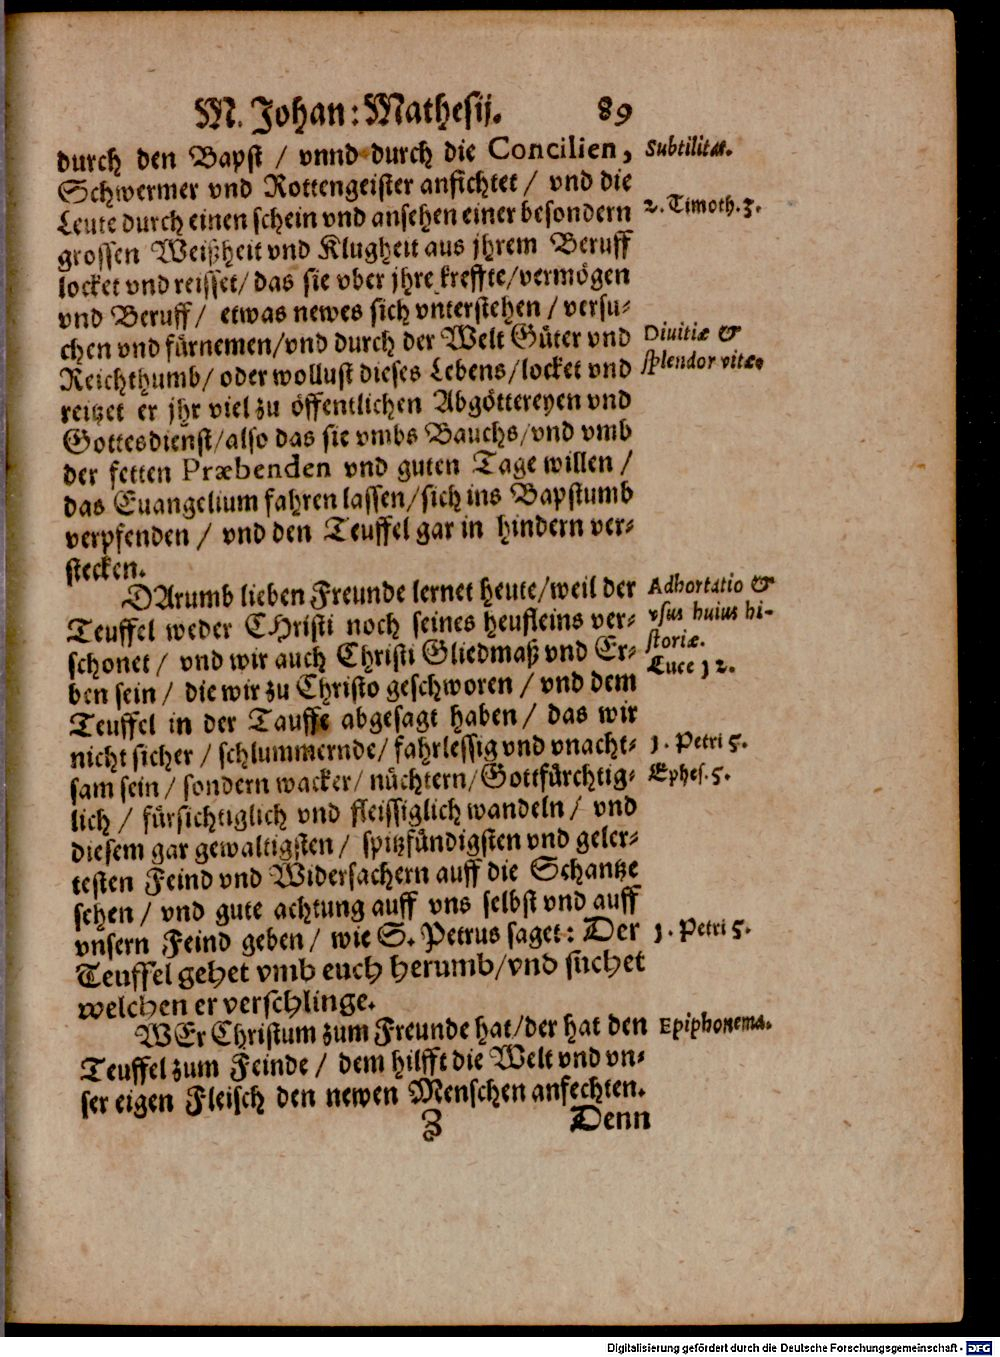 M. Johan: Mathesij. 89
durch den Bapst / vnnd durch die Concilien,
Subtilitas.
Schwermer vnd Rottengeister anfichtet / vnd die
Leute durch einen schein vnd ansehen einer besondern
2. Timoth. 3.
grossen Weißheit vnd Klugheit aus jhrem Beruff
locket vnd reisset / das sie vber jhre kreffte / vermögen
vnd Beruff / etwas newes sich vnterstehen / versu-
chen vnd fürnemen / vnd durch der Welt Güter vnd
Diuitiæ &
Reichthumb / oder wollust dieses Lebens / locket vnd
splendor vitæ.
reitzet er jhr viel zu öffentlichen Abgöttereyen vnd
Gottesdienst / also das sie vmbs Bauchs / vnd vmb
der fetten Præbenden vnd guten Tage willen /
das Euangelium fahren lassen / sich ins Bapstumb
verpfenden / vnd den Teuffel gar in hindern ver-
stecken.
DArumb lieben Freunde lernet heute / weil der
Adhortatio &
Teuffel weder CHristi noch seines heufleins ver-
vsus huius hi-
schonet / vnd wir auch Christi Gliedmaß vnd Er-
storiæ.
Luce 12.
ben sein / die wir zu Christo geschworen / vnd dem
Teuffel in der Tauffe abgesagt haben / das wir
nicht sicher / schlummernde / fahrlessig vnd vnacht-
1. Petri 5.
sam sein / sondern wacker / nüchtern / Gottfürchtig-
Ephes. 5.
lich / fürsichtiglich vnd fleissiglich wandeln / vnd
diesem gar gewaltigsten / spitzfündigsten vnd geler-
testen Feind vnd Widersachern auff die Schantze
sehen / vnd gute achtung auff vns selbst vnd auff
vnsern Feind geben / wie S. Petrus saget: Der
1. Petri 5.
Teuffel gehet vmb euch herumb / vnd suchet
welchen er verschlinge.
WEr Christum zum Freunde hat / der hat den
Epiphonema.
Teuffel zum Feinde / dem hilfft die Welt vnd vn-
ser eigen Fleisch den newen Menschen anfechten.
Z Denn
Digitalisierung gefördert durch die Deutsche Forschungsgemeinschaft - DFG